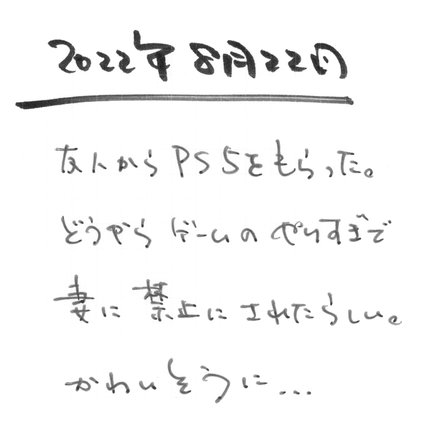 2022年8月22日
友人からPS5をもらった。
どうやらゲームのやりすぎで
妻に禁止にされたらしい。
かわいそうに...